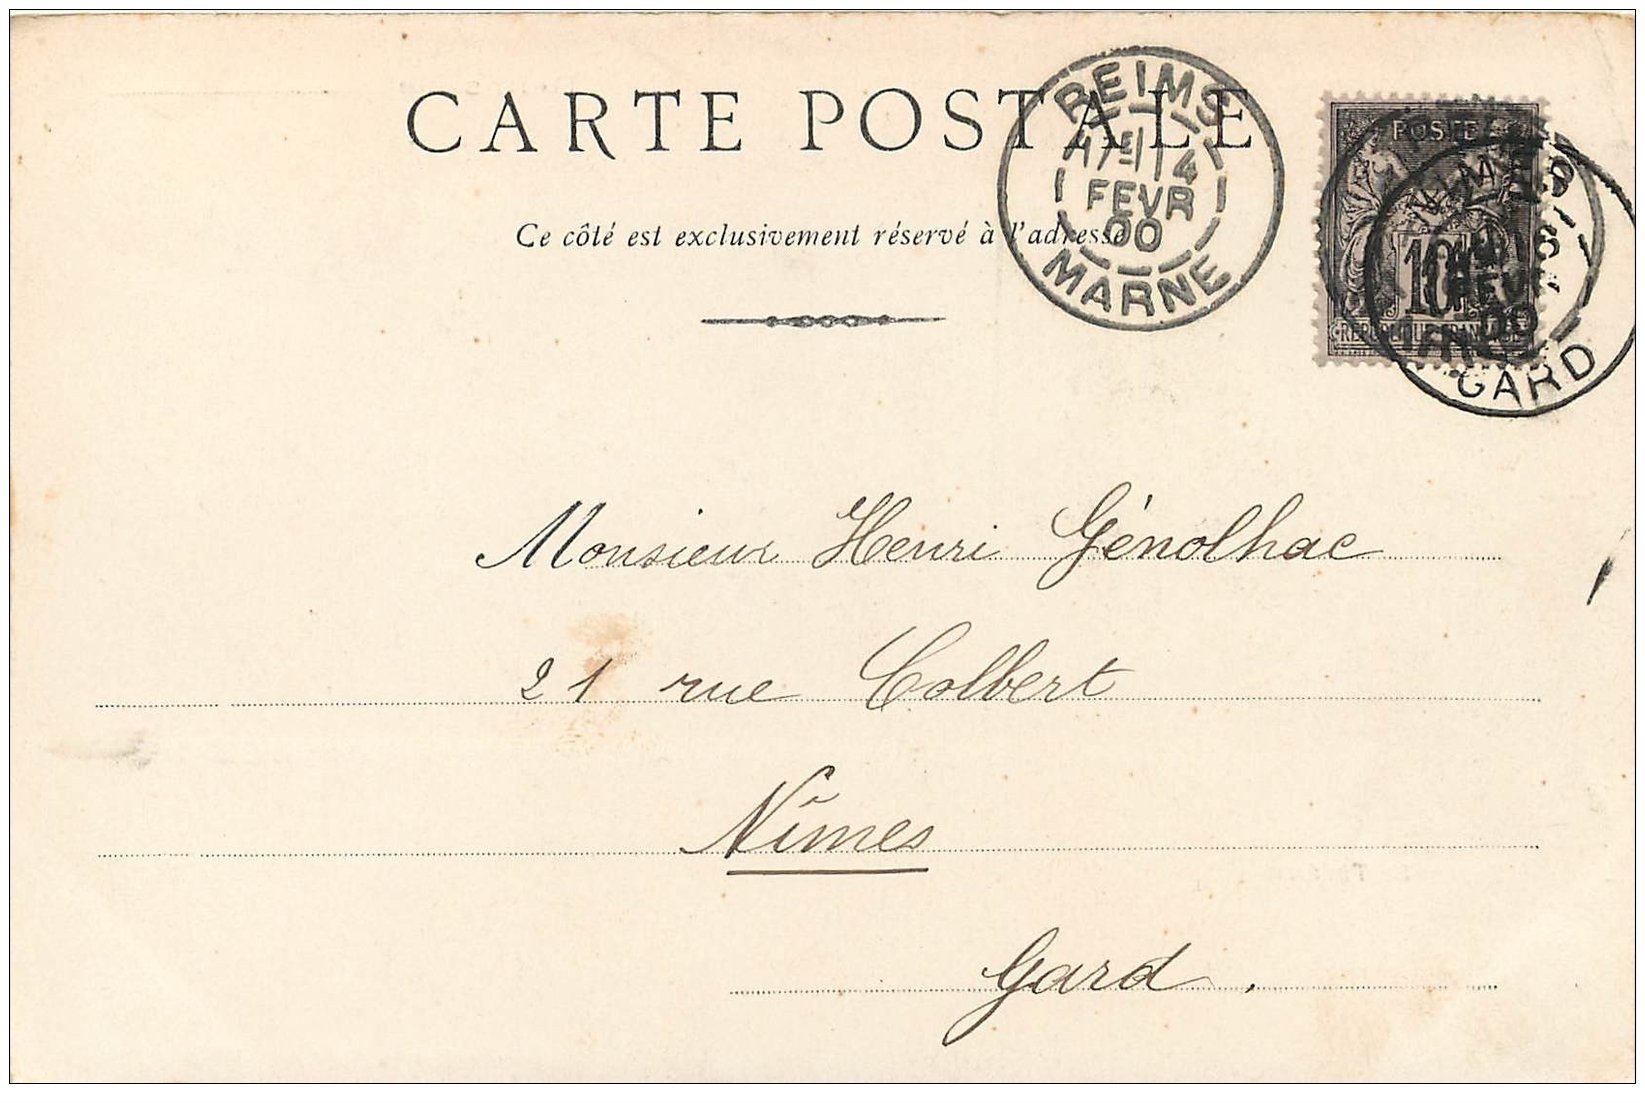 CARTE POSTALE
Ce côté est exclusivement réservé à l'adresse
REIMS
4
FEVR
00
MARNE
POSTE
10
NIMES
GARD
Monsieur Henri Génolhac
21 rue Colbert
Nîmes
Gard.